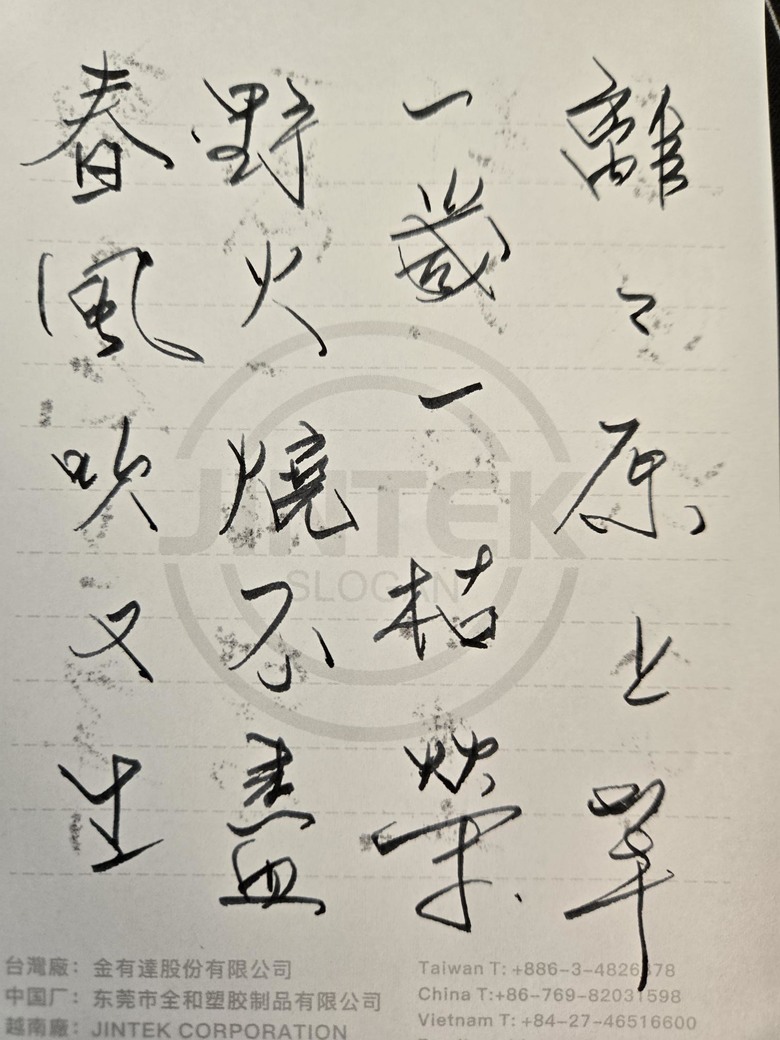 離々原上草
一歲一枯榮
野火燒不盡
春風吹又生
JINTEK
SLOGAN
台灣廠：金有達股份有限公司
中国厂：东莞市全和塑胶制品有限公司
越南廠：JINTEK CORPORATION
Taiwan T: +886-3-4826878
China T:+86-769-82031598
Vietnam T: +84-27-46516600